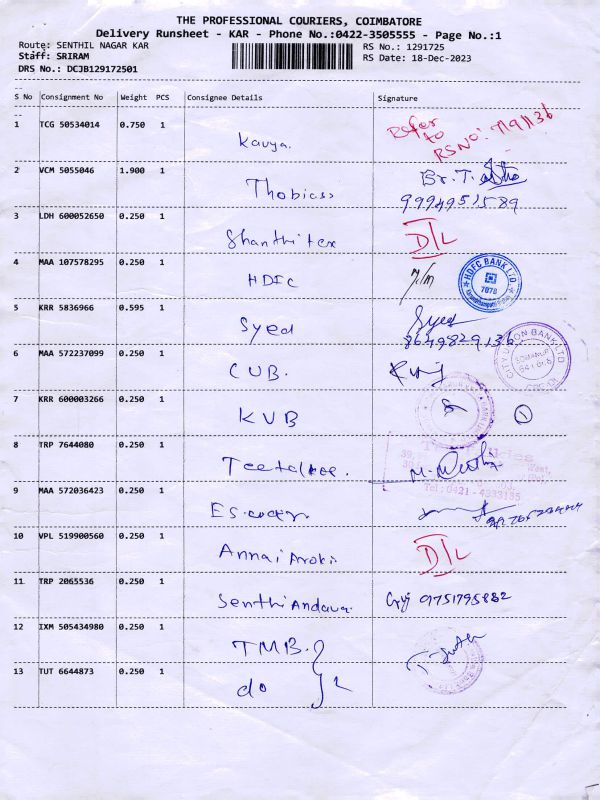 THE PROFESSIONAL COURIERS, COIMBATORE
Delivery Runsheet - KAR - Phone No.:0422-3505555 - Page No.:1
Route: SENTHIL NAGAR KAR RS No.: 1291725
Staff: SRIRAM RS Date: 18-Dec-2023
DRS No.: DCJB129172501
S No Consignment No Weight PCS Consignee Details Signature
1 TCG 50534014 0.750 1 Kavya. Refer to RS No: 7191136
2 VCM 5055046 1.900 1 Thobiass Br. T.
9994951589
3 LDH 600052650 0.250 1 Shanthi tex D/L
4 MAA 107578295 0.250 1 HDFC HDFC BANK LTD 7078
5 KRR 5836966 0.595 1 Syed Syed
8649829136
6 MAA 572237099 0.250 1 CUB. CITY UNION BANK LTD SOMANUR 641
7 KRR 600003266 0.250 1 KVB 1
8 TRP 7644080 0.250 1 39, West,
Tel : 0421 - 4333135
9 MAA 572036423 0.250 1
10 VPL 519900560 0.250 1 Annai Aroki D/L
11 TRP 2065536 0.250 1 Senthi Andava 9751795882
12 IXM 505434980 0.250 1 TMB.
13 TUT 6644873 0.250 1 do } 2